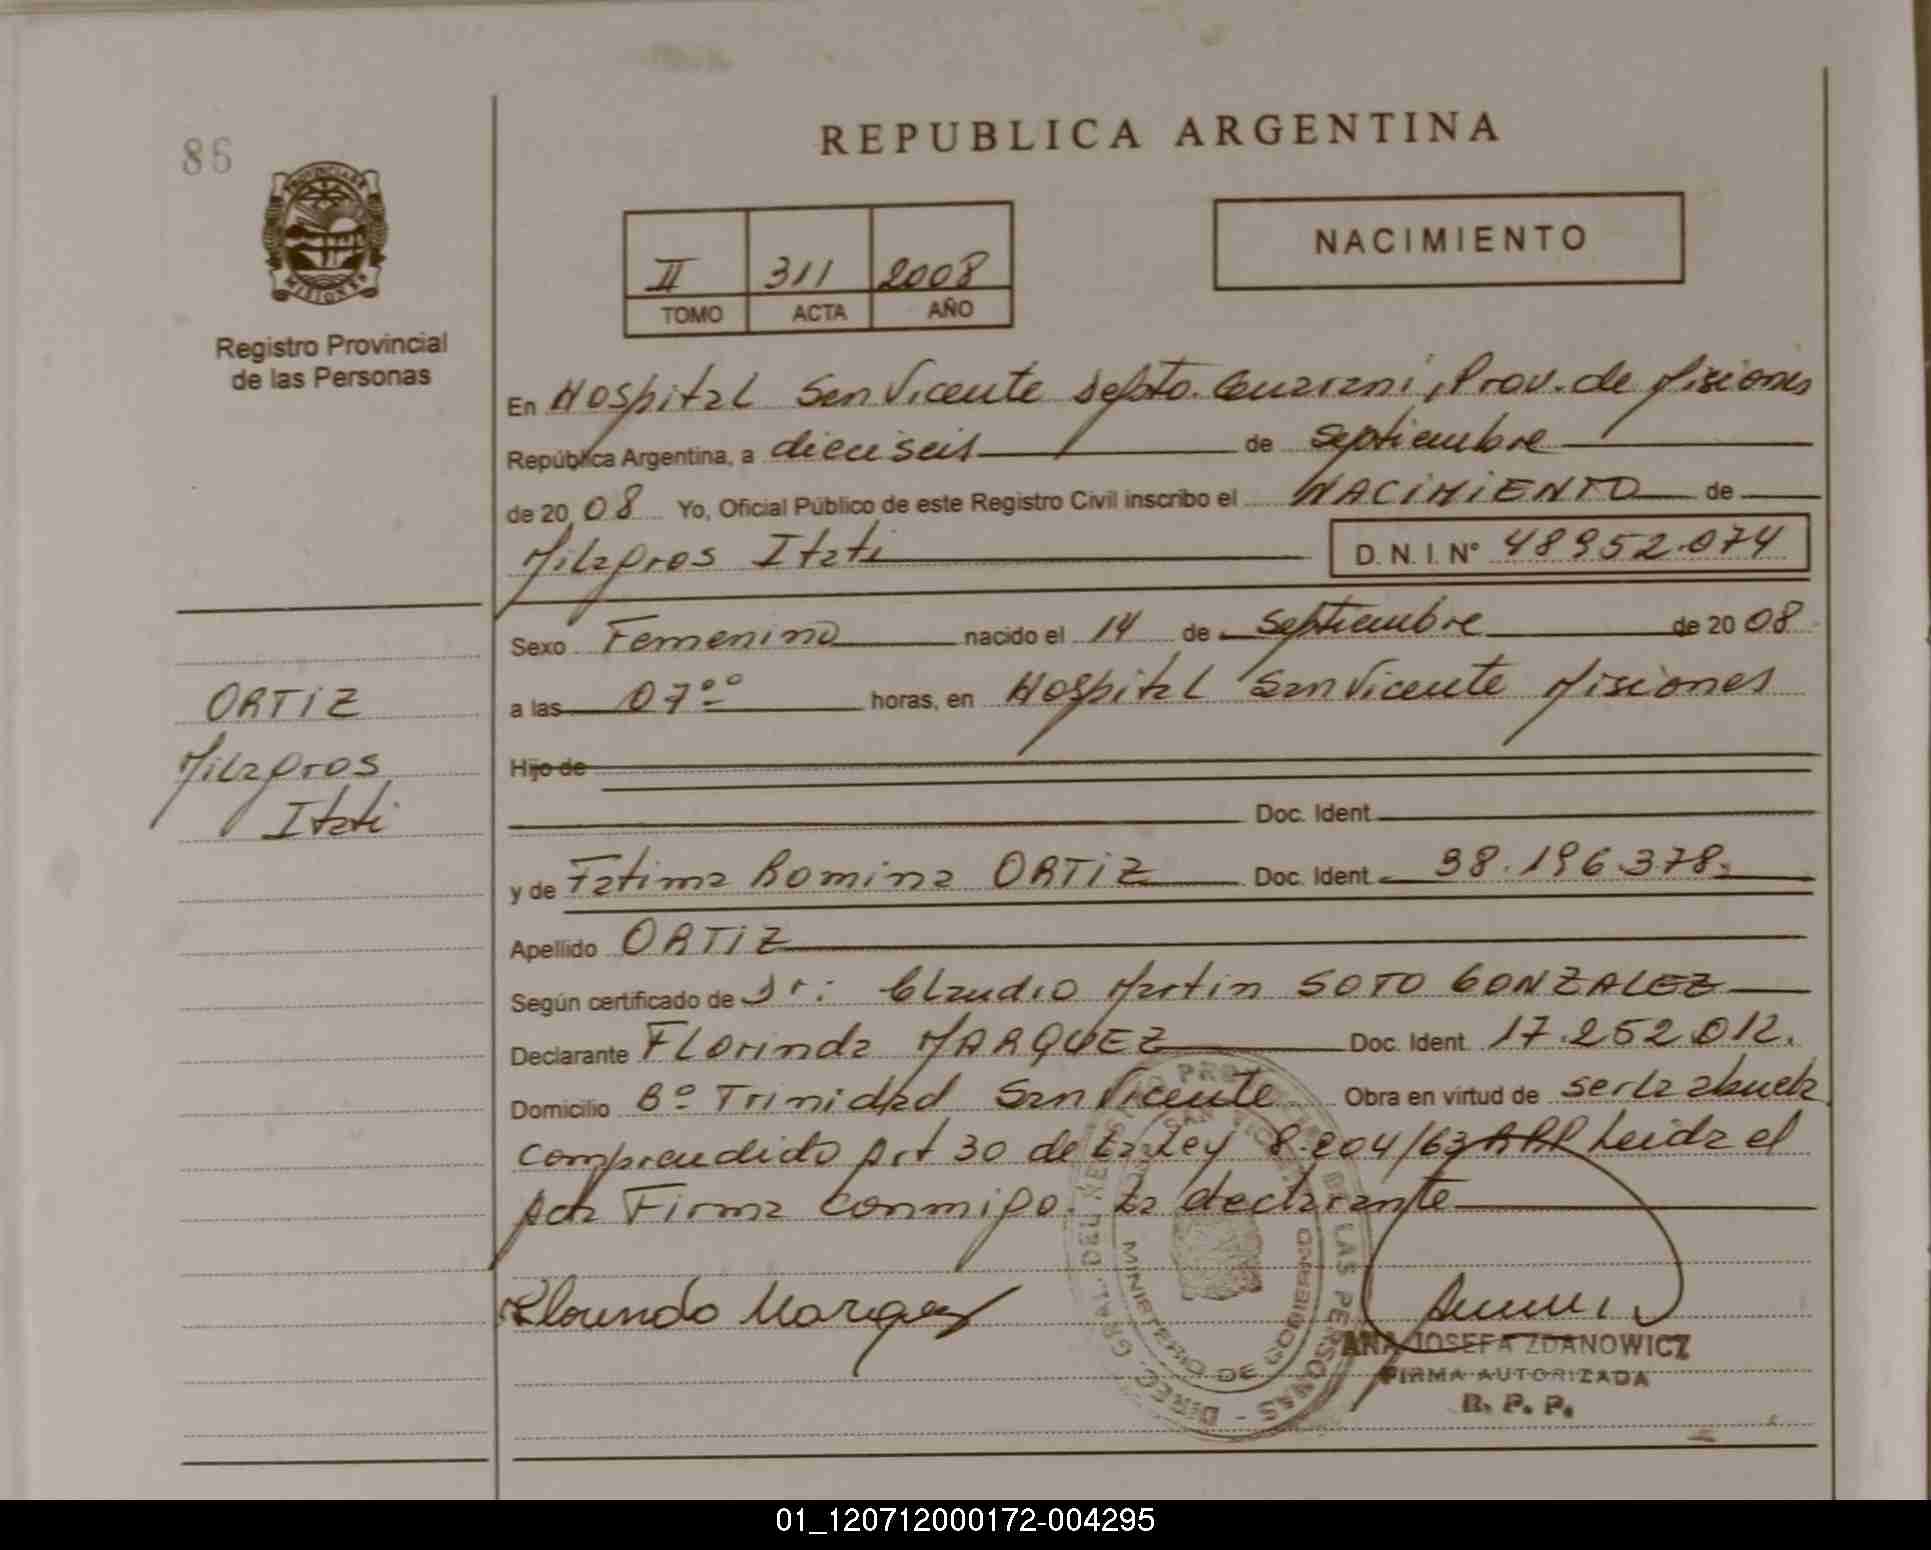 86
REPUBLICA ARGENTINA
PROVINCIA DE
MISIONES
Registro Provincial
de las Personas
II 311 2008
TOMO ACTA AÑO
NACIMIENTO
En Hospital San Vicente Depto. Guarani, Prov. de Misiones
República Argentina, a dieciseis de septiembre
de 20 08 Yo, Oficial Público de este Registro Civil inscribo el NACIMIENTO de
Milagros Itati D. N. I. Nº 48952.074
Sexo Femenino nacido el 14 de Septiembre de 20 08
a las 07ºº horas, en Hospital San Vicente Misiones
ORTIZ
Milagros
Itati
Hijo de
Doc. Ident
y de Fatima Romina ORTIZ Doc. Ident 38.196.378.
Apellido ORTIZ
Según certificado de Dr: Claudio Martin SOTO GONZALEZ
Declarante Florinda MARQUEZ Doc. Ident 17.252.012.
Domicilio Bº Trinidad San Vicente Obra en virtud de ser la abuela
comprendido Art 30 de la Ley 8.204/63 Leida el
Acta Firma conmigo. La declarante
Marquez
DIREC. GRAL. DEL LAS PERSONAS
MINISTERIO DE GOBIERNO
ANA JOSEFA ZDANOWICZ
FIRMA AUTORIZADA
R. P. P.
01_120712000172-004295